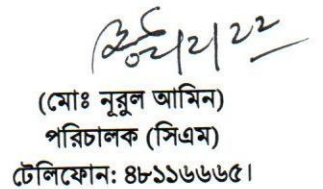 ২/২/২২
(মোঃ নূরুল আমিন)
পরিচালক (সিএম)
টেলিফোন: ৪৮১১৬৬৬৫।